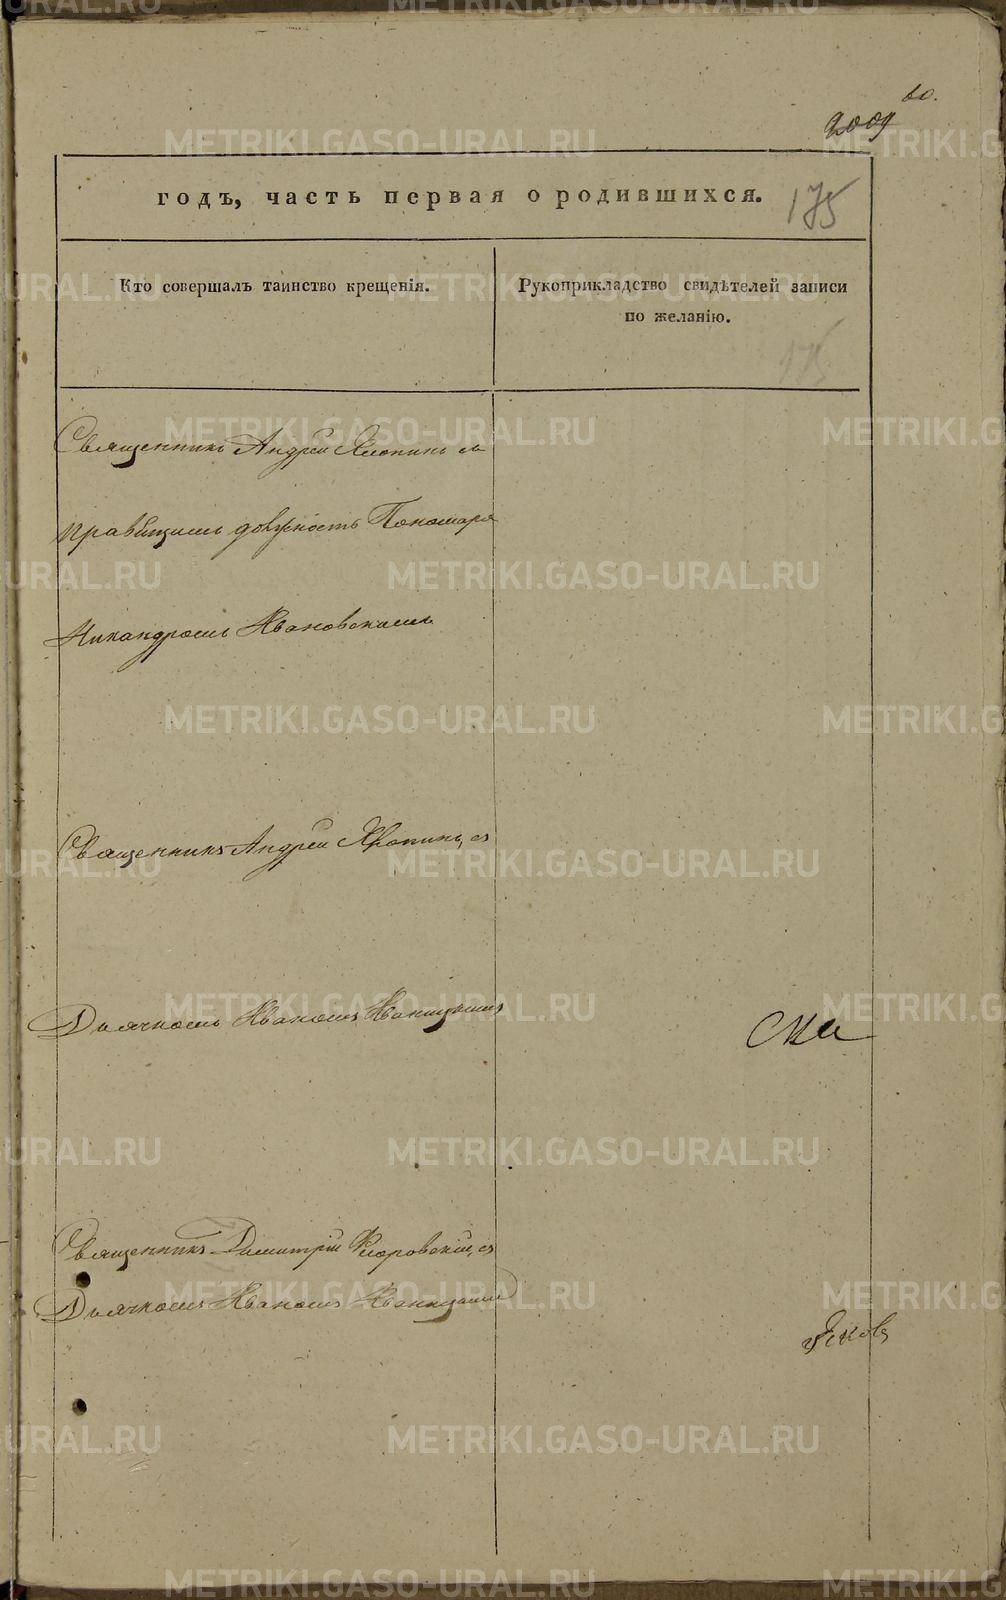 60.
2009
годъ, часть первая о родившихся.
175
Кто совершалъ таинство крещенія.
Рукоприкладство свидѣтелей записи
по желанію.
175
Священникъ Андрей Хлопинъ съ
правящимъ должность Пономаря
Никандромъ Ивановскимъ
Священникъ Андрей Хлопинъ, съ
Дьячкомъ Иваномъ Иваницкимъ
Священникъ Димитрій Флоровскій, съ
Дьячкомъ Иваномъ Иваницкимъ
METRIKI.GASO-URAL.RU